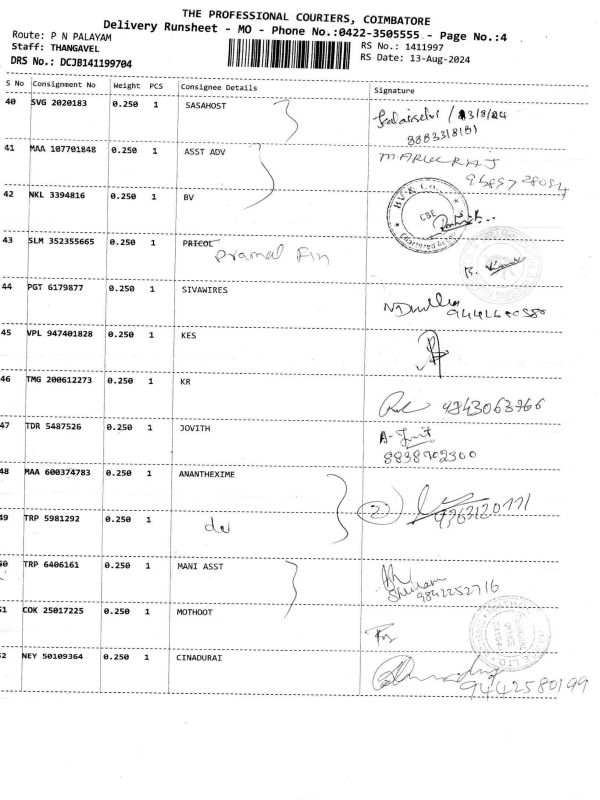 THE PROFESSIONAL COURIERS, COIMBATORE
Delivery Runsheet - MO - Phone No.:0422-3505555 - Page No.:4
Route: P N PALAYAM
Staff: THANGAVEL
DRS No.: DCJB141199704
RS No.: 1411997
RS Date: 13-Aug-2024
S No Consignment No Weight PCS Consignee Details Signature
40 SVG 2020183 0.250 1 SASAHOST
/ 13/8/24
41 MAA 107701848 0.250 1 ASST ADV
42 NKL 3394816 0.250 1 BV
BV & Co.
CBE
43 SLM 352355665 0.250 1 PRICOL
Pramal Fin
44 PGT 6179877 0.250 1 SIVAWIRES
45 VPL 947401828 0.250 1 KES
46 TMG 200612273 0.250 1 KR
9843063766
47 TDR 5487526 0.250 1 JOVITH
8838702300
48 MAA 600374783 0.250 1 ANANTHEXIME
2
49 TRP 5981292 0.250 1 do
50 TRP 6406161 0.250 1 MANI ASST
9842252716
51 COK 25017225 0.250 1 MOTHOOT
52 NEY 50109364 0.250 1 CINADURAI
9442580199